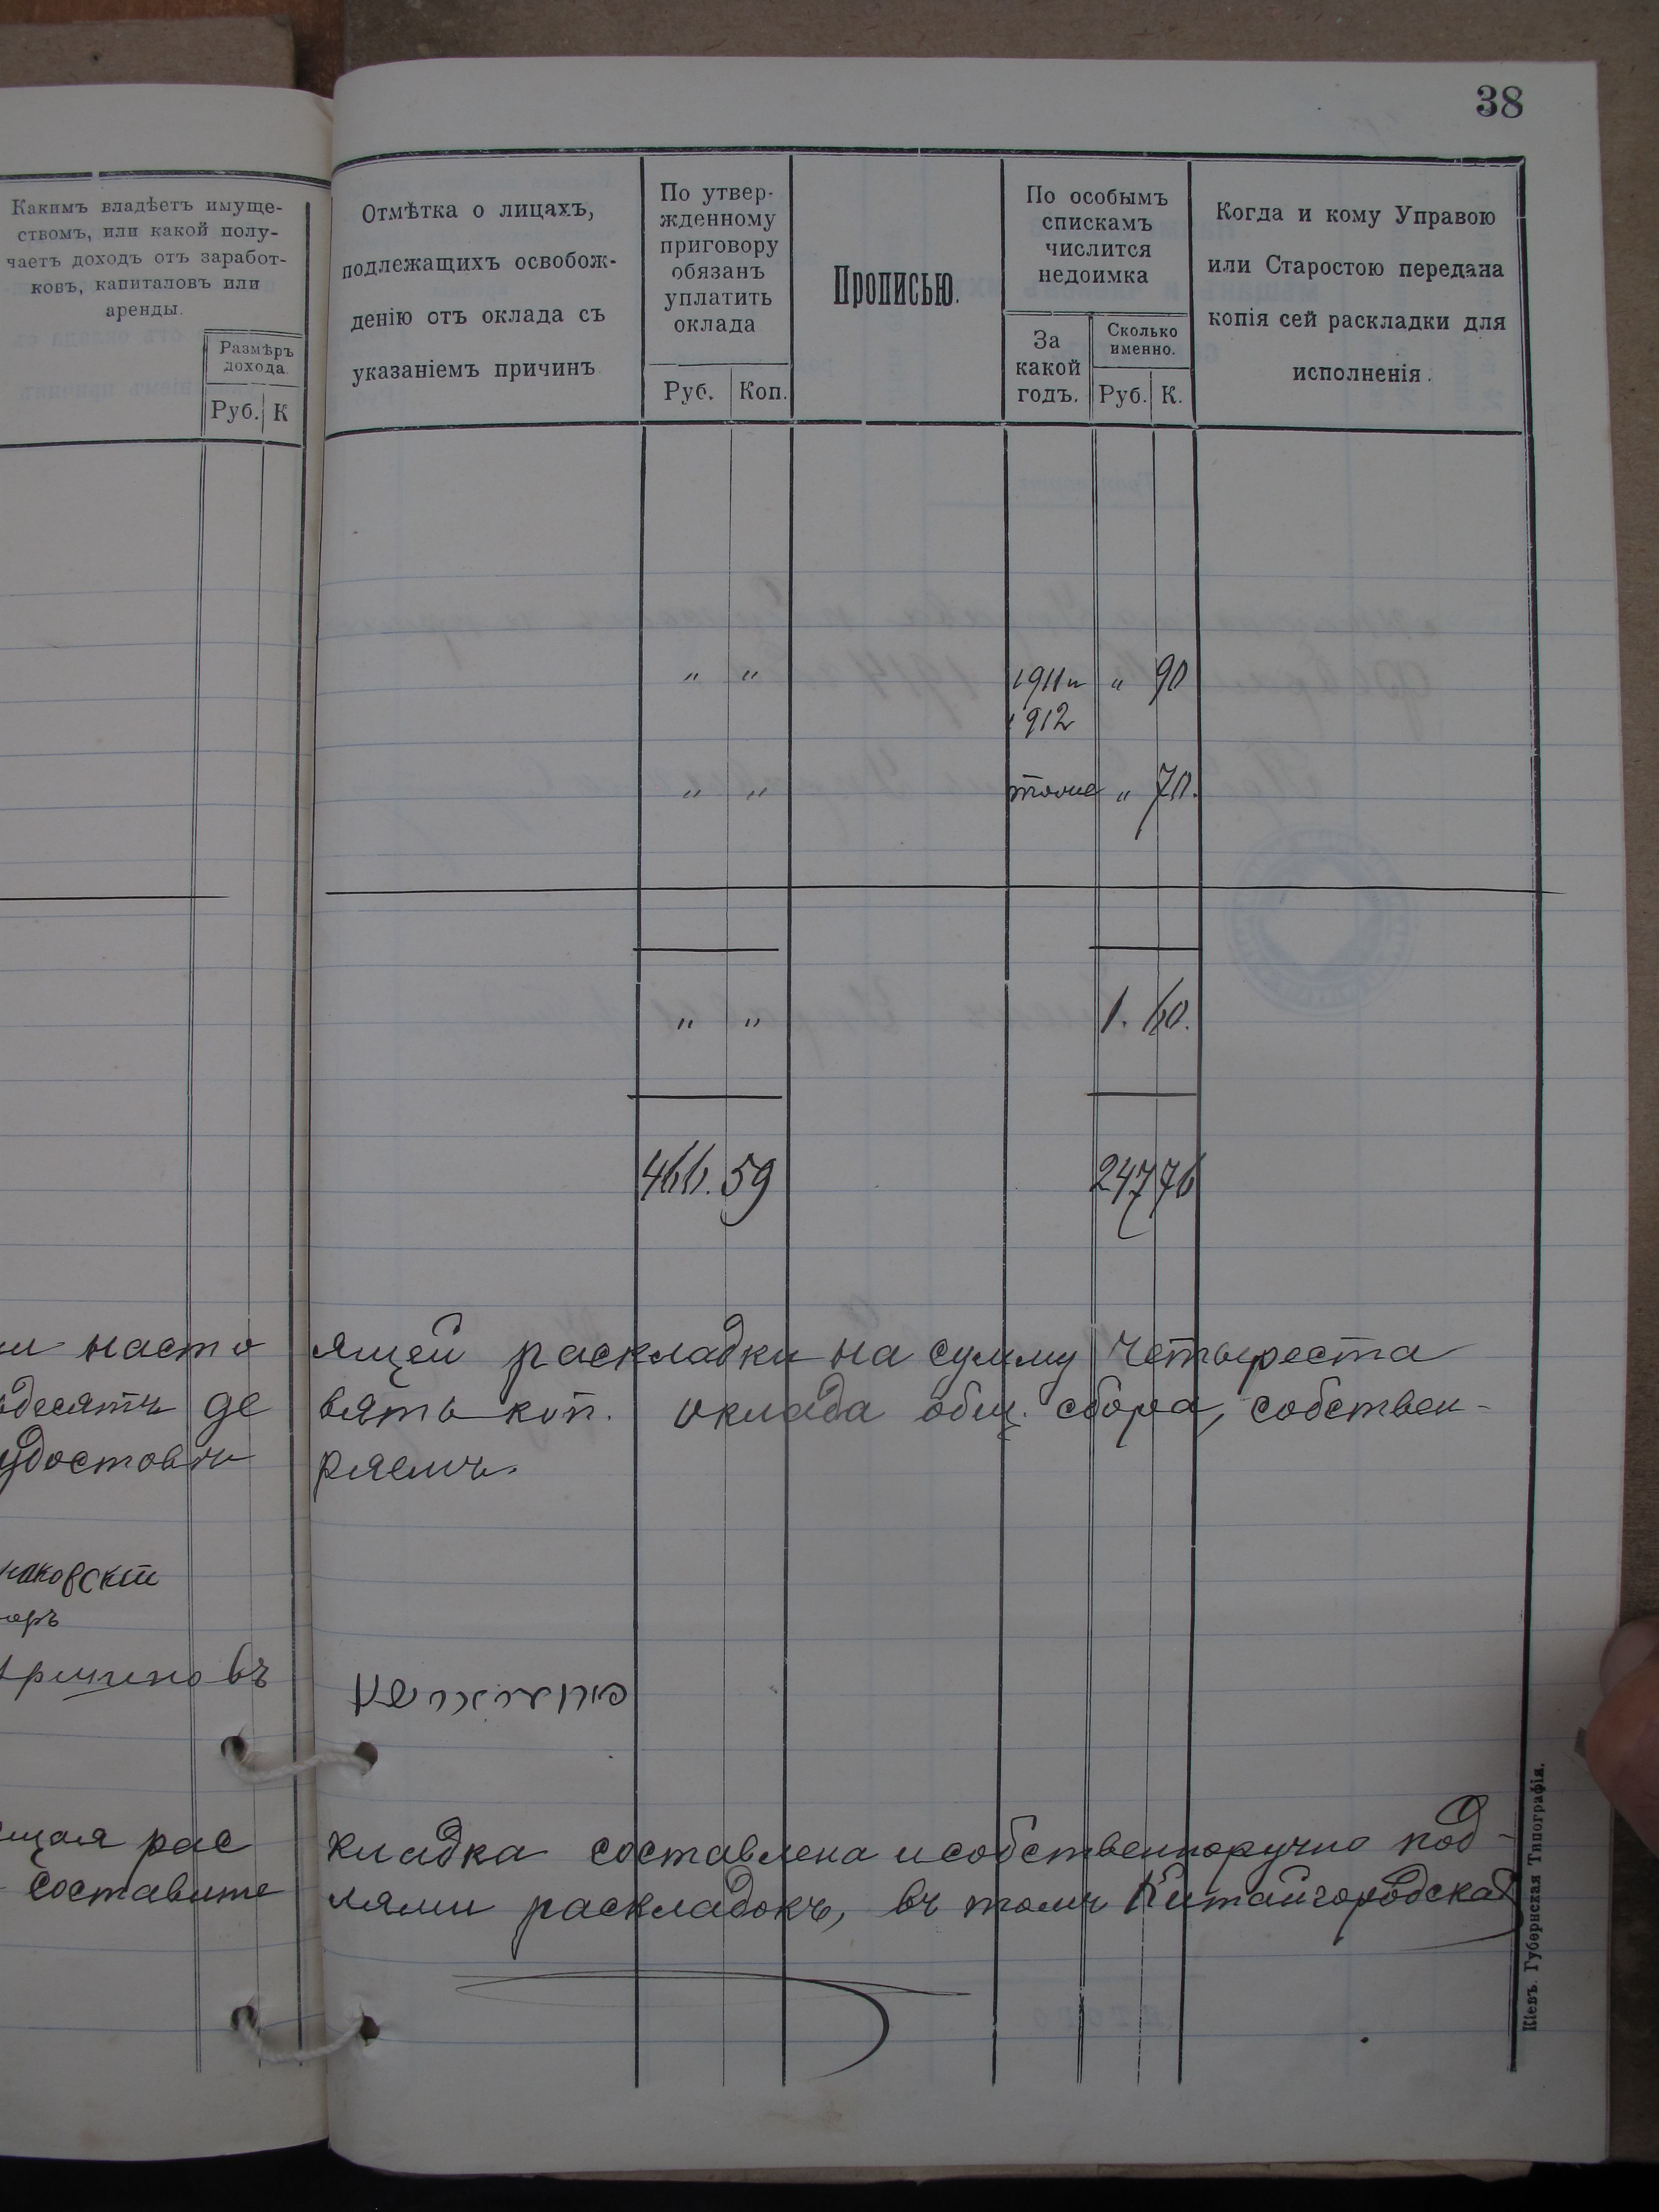 38
Какимъ владѣетъ имуще-
ствомъ, или какой полу-
чаетъ доходъ отъ заработ-
ковъ, капиталовъ или
аренды.
Размѣръ
дохода.
Руб. К
Отмѣтка о лицахъ,
подлежащихъ освобож-
денію отъ оклада съ
указаніемъ причинъ
По утвер-
жденному
приговору
обязанъ
уплатить
оклада
Руб. Коп.
Прописью.
По особымъ
спискамъ
числится
недоимка
За
какой
годъ.
Сколько
именно.
Руб. К.
Когда и кому Управою
или Старостою передана
копія сей раскладки для
исполненія.
" " 1911 и " 90
1912
" " тоже " 70.
" " 1. 60.
466. 59 247 76
насто ящей раскладки на сумму четыреста
десять де вять коп. оклада общ. сбора, собствен-
удостовѣ ряемъ.
ковскій
щая рас кладка составлена и собственноручно под-
составите лями раскладокъ, въ томъ Китайгородская
Кіевъ. Губернская Типографія.